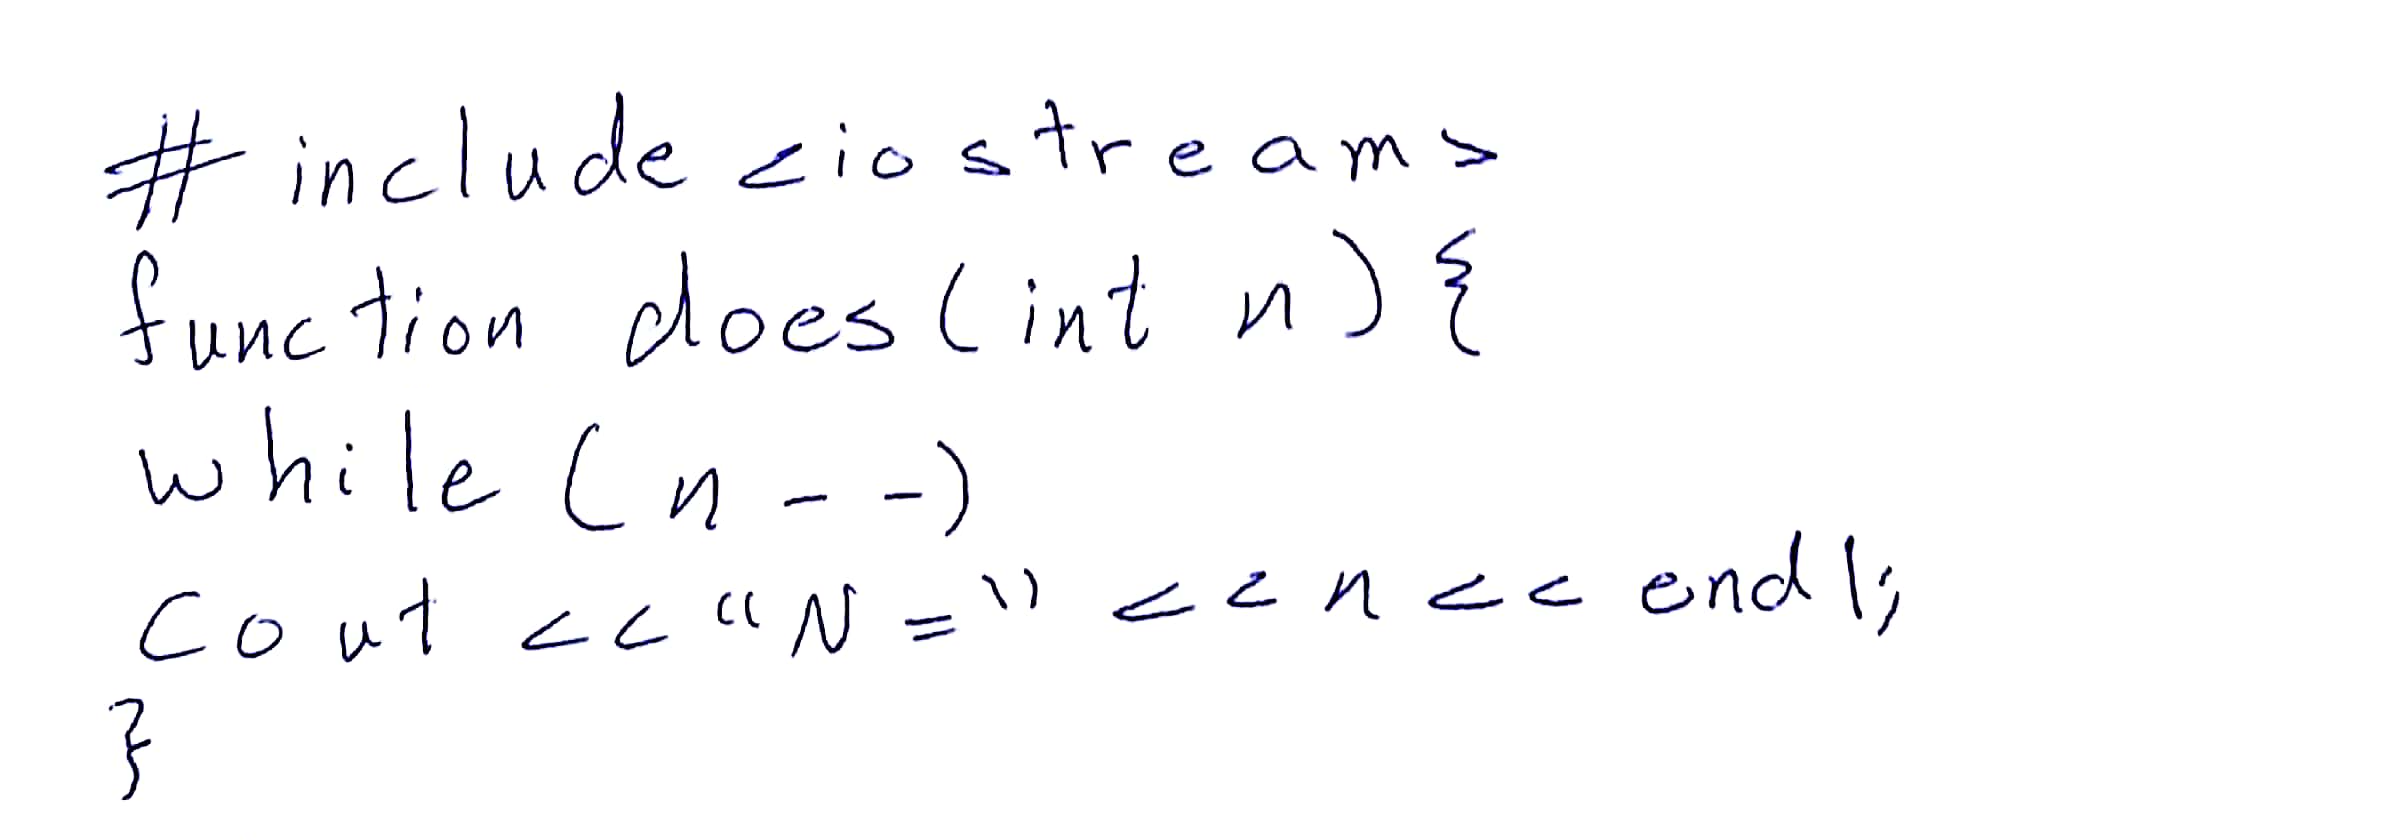 # include <iostream>
function does(int n){
while (n--)
Cout << "N=" << n << endl;
}